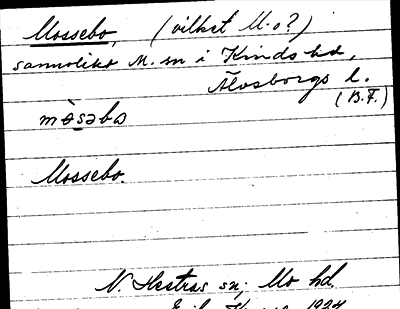 Mossebo, (vilket M-o?)
sannolikt M. sn i Kinds hd,
Älvsborgs l.
(B.F.)
mòsəbo
Mossebo.
N. Hestras sn, Mo hd.
1924